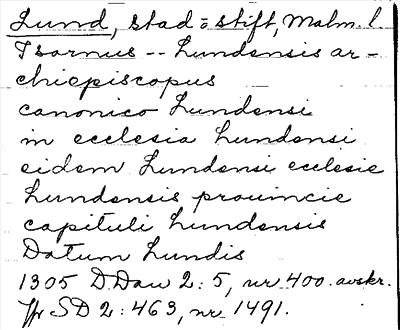 Lund, stad o stift, Malm. l
Isarnus -- Lundensis ar-
chiepiscopus
canonico Lundensi
in ecclesia Lundensi
eidem Lundensi ecclesie
Lundensis prouincie
capituli Lundensis
Datum Lundis
1305 D.Dan 2:5, nr 400. avskr.
Jfr SD 2:463, nr 1491.